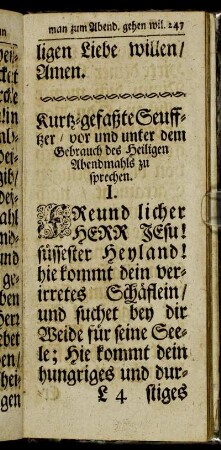 man zum Abend. gehen wil. 247
ligen Liebe willen/
Amen.
Kurtz-gefaßte Seuff-
tzer/ vor und unter dem
Gebrauch des Heiligen
Abendmahls zu
sprechen.
I.
FReund licher
HERR JEsu!
süssester Heyland!
hie kommt dein ver-
irretes Schäflein/
und suchet bey dir
Weide für seine See-
le; Hie kommt dein
hungriges und dur-
L 4 stiges